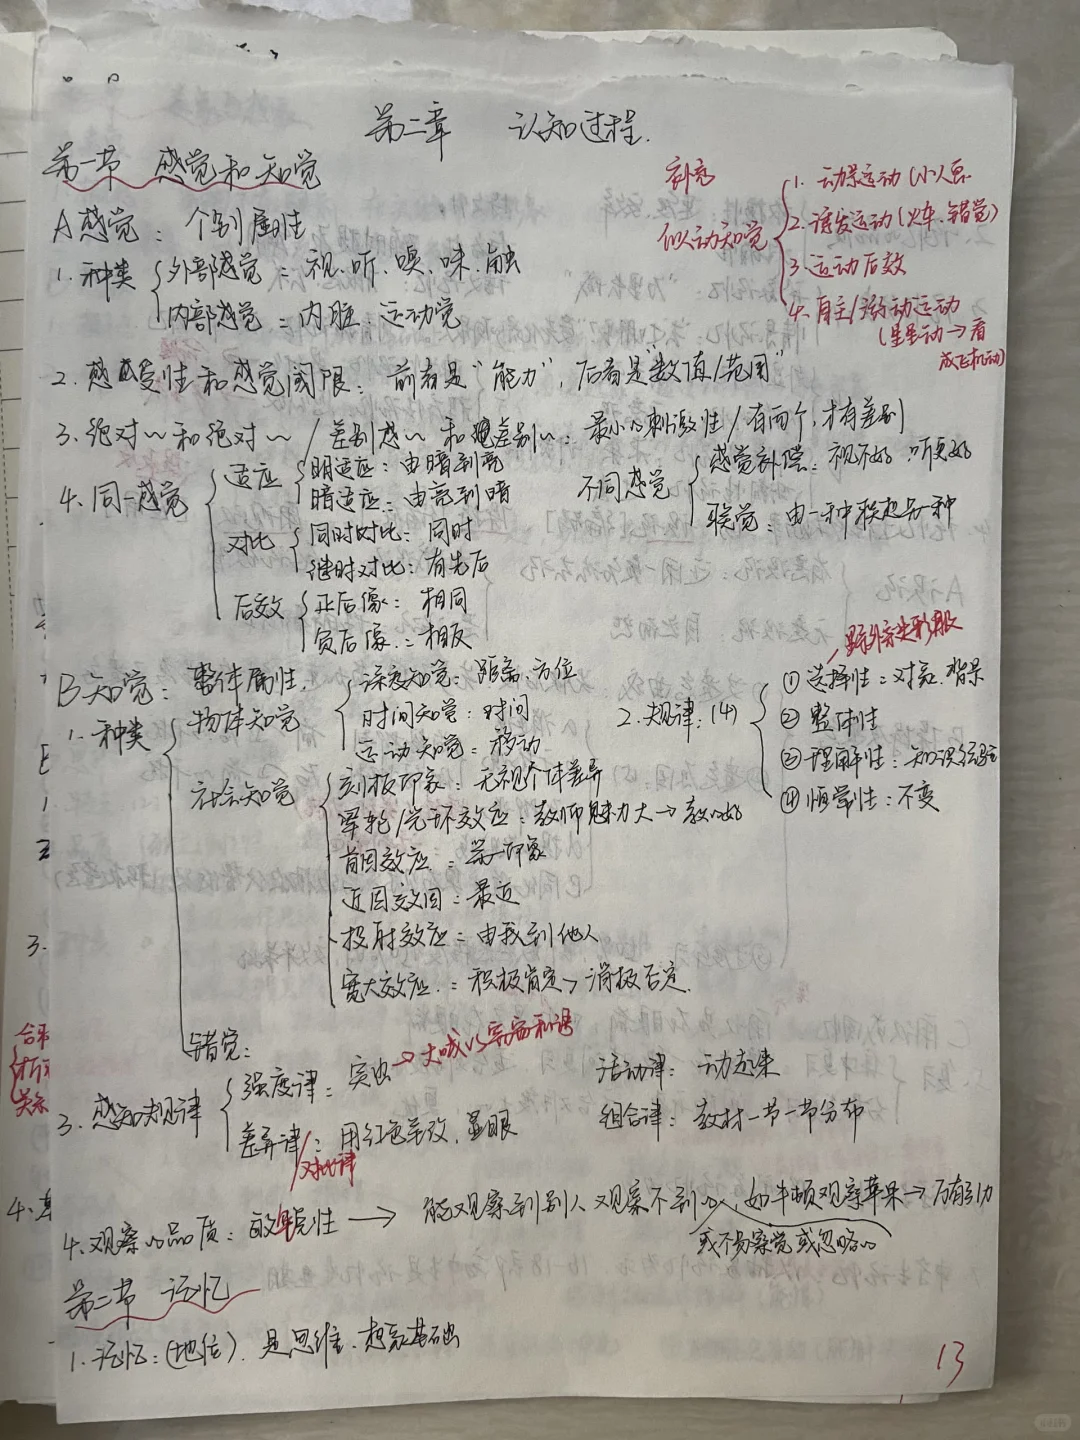 第二章 认知过程.
第一节 感觉和知觉
补充
似动知觉
1. 动景运动(小人
2. 诱发运动(火车、错觉)
3. 运动后效
4. 自主/游动运动
(星星动→看
成飞机动)
A 感觉: 个别属性
1. 种类
外部感觉: 视、听、嗅、味、触
内部感觉: 内脏、运动觉
2. 感受性和感觉阈限: 前者是“能力”, 后者是“数值/范围”
3. 绝对~和绝对~/差别感~和差别~: 最小的刺激性/有两个,才有差别
4. 同一感觉
适应
明适应: 由暗到亮
暗适应: 由亮到暗
对比
同时对比: 同时
继时对比: 有先后
后效
正后像: 相同
负后像: 相反
不同感觉
感觉补偿: 视不好 听更好
联觉: 由一种联起另一种
B 知觉: 整体属性.
1. 种类
物体知觉
深度知觉: 距离、方位
时间知觉: 时间
运动知觉: 移动
社会知觉
刻板印象: 无视个体差异
晕轮/光环效应: 教师魅力大→教的好
首因效应: 第一印象
近因效因: 最近
投射效应: 由我到他人
宽大效应: 积极肯定>消极否定.
错觉:
2. 规律: (4)
① 选择性: 对象、背景
② 整体性
③ 理解性: 知识经验
④ 恒常性: 不变
3. 感知规律
强度律: 突出
差异律: 用红色笔改、显眼
/对比律
活动律: 动起来
组合律: 教材一节一节分布
4. 观察的品质: 敏锐性 → 能观察到别人观察不到的, 如牛顿观察苹果→万有引力
或不易察觉或忽略的
第二节 记忆
1. 记忆: (地位). 是思维、想象基础
13